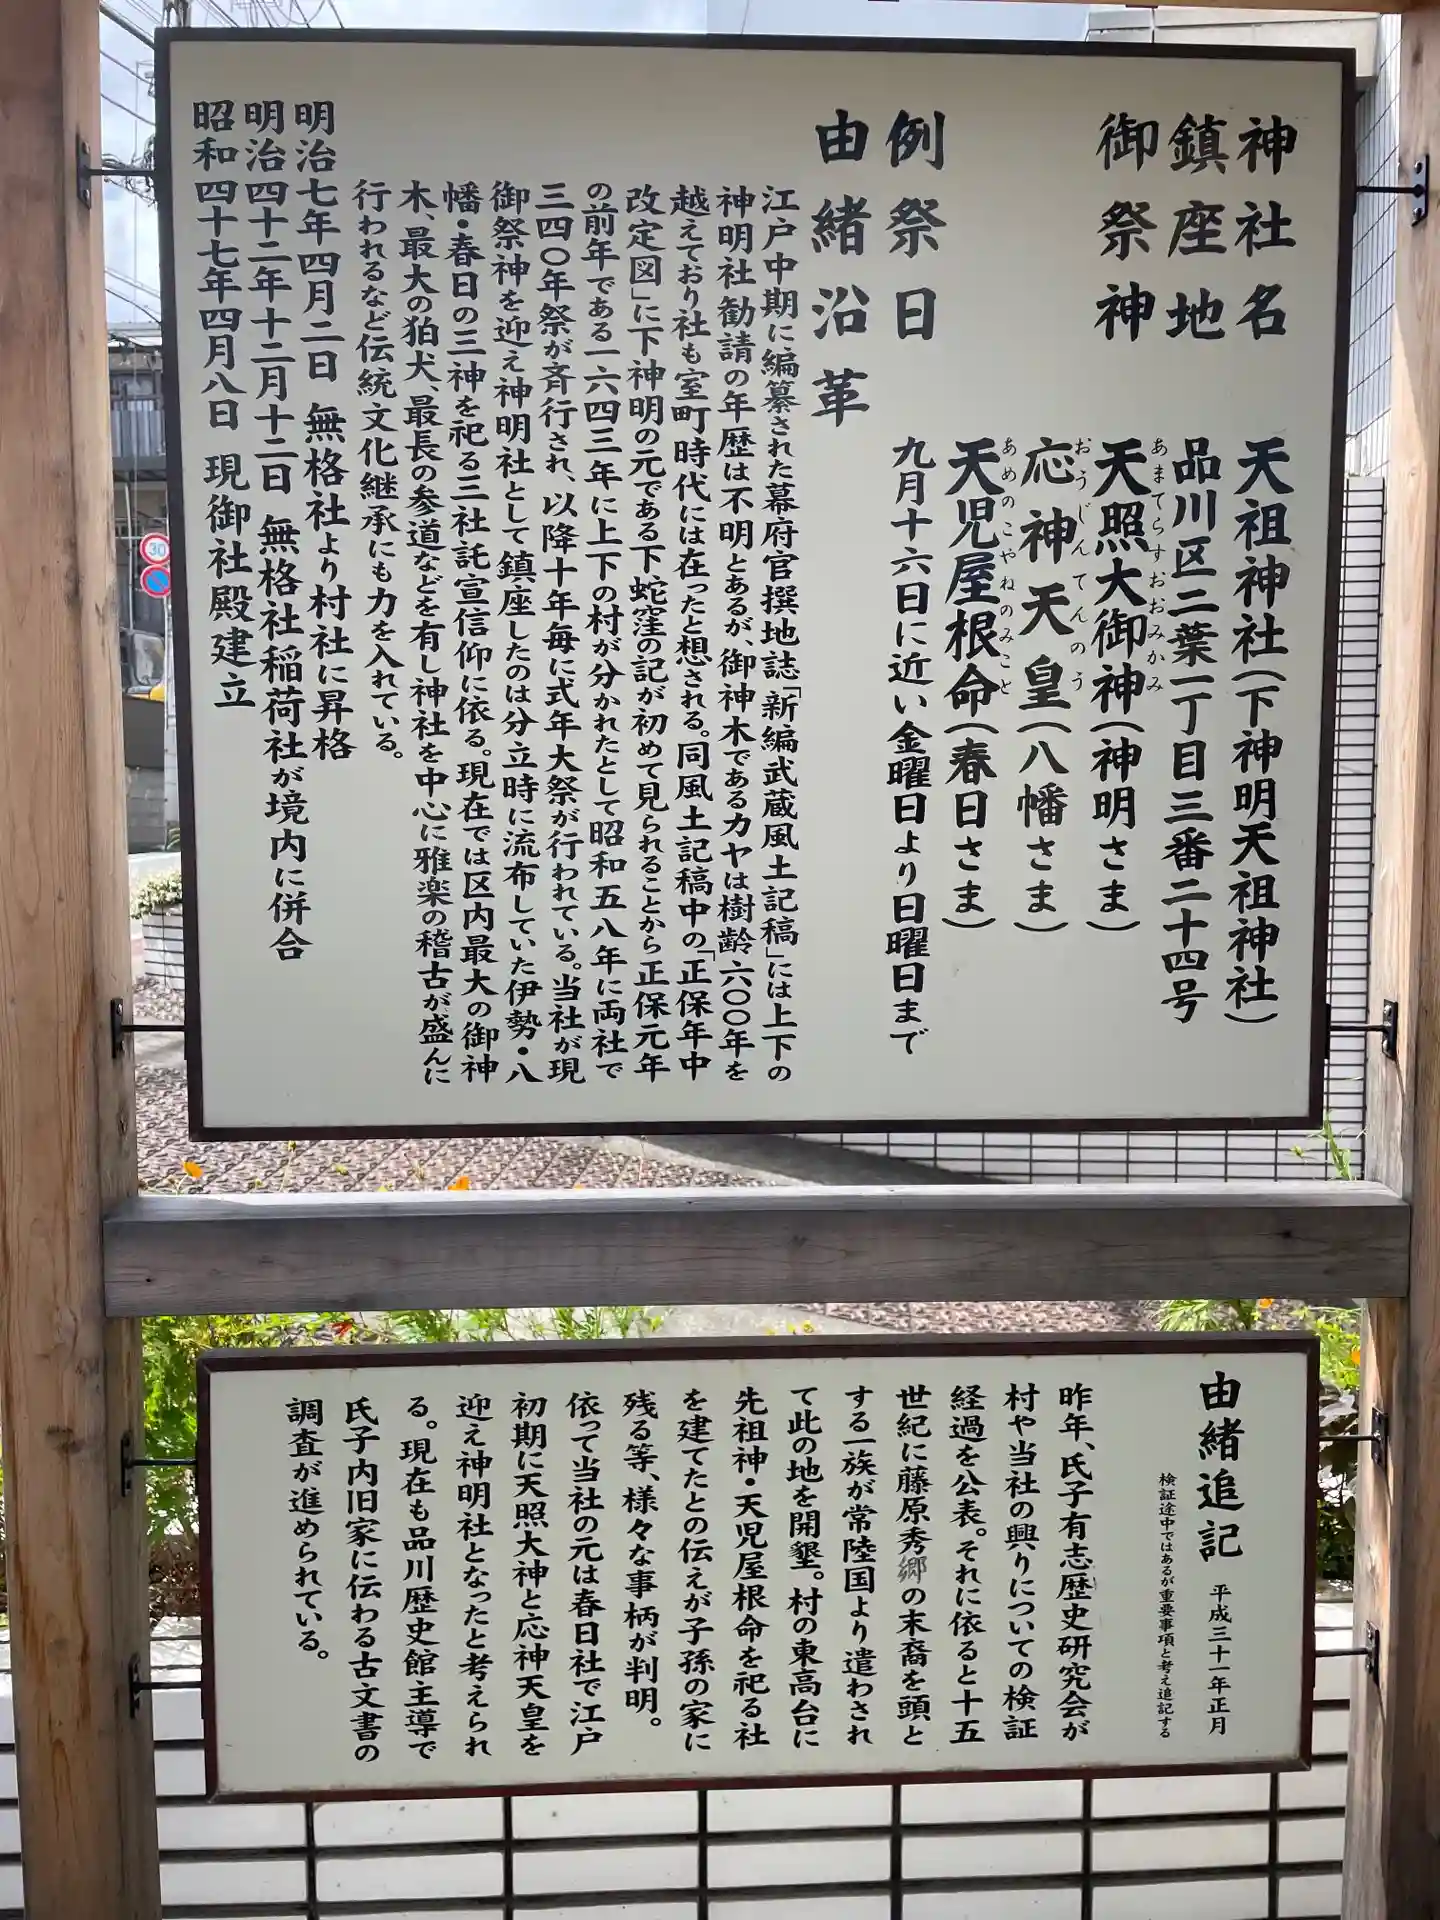 神社名 天祖神社(下神明天祖神社)
鎮座地 品川区二葉一丁目三番二十四号
御祭神 天照大御神(神明さま)
あまてらすおおみかみ
応神天皇(八幡さま)
おうじんてんのう
天児屋根命(春日さま)
あめのこやねのみこと
例祭日 九月十六日に近い金曜日より日曜日まで
由緒沿革
江戸中期に編纂された幕府官撰地誌「新編武蔵風土記稿」には上下の
神明社勧請の年歴は不明とあるが、御神木であるカヤは樹齢六〇〇年を
越えており社も室町時代には在ったと想される。同風土記稿中の「正保年中
改定図」に下神明の元である下蛇窪の記が初めて見られることから正保元年
の前年である一六四三年に上下の村が分かれたとして昭和五八年に両社で
三四〇年祭が斉行され、以降十年毎に式年大祭が行われている。当社が現
御祭神を迎え神明社として鎮座したのは分立時に流布していた伊勢・八
幡・春日の三神を祀る三社託宣信仰に依る。現在では区内最大の御神
木、最大の狛犬、最長の参道などを有し神社を中心に雅楽の稽古が盛んに
行われるなど伝統文化継承にも力を入れている。
明治七年四月二日 無格社より村社に昇格
明治四十二年十二月十二日 無格社稲荷社が境内に併合
昭和四十七年四月八日 現御社殿建立
30
由緒追記 平成三十一年正月
検証途中ではあるが重要事項と考え追記する
昨年、氏子有志歴史研究会が
村や当社の興りについての検証
経過を公表。それに依ると十五
世紀に藤原秀郷の末裔を頭と
する一族が常陸国より遣わされ
て此の地を開墾。村の東高台に
先祖神・天児屋根命を祀る社
を建てたとの伝えが子孫の家に
残る等、様々な事柄が判明。
依って当社の元は春日社で江戸
初期に天照大神と応神天皇を
迎え神明社となったと考えられ
る。現在も品川歴史館主導で
氏子内旧家に伝わる古文書の
調査が進められている。